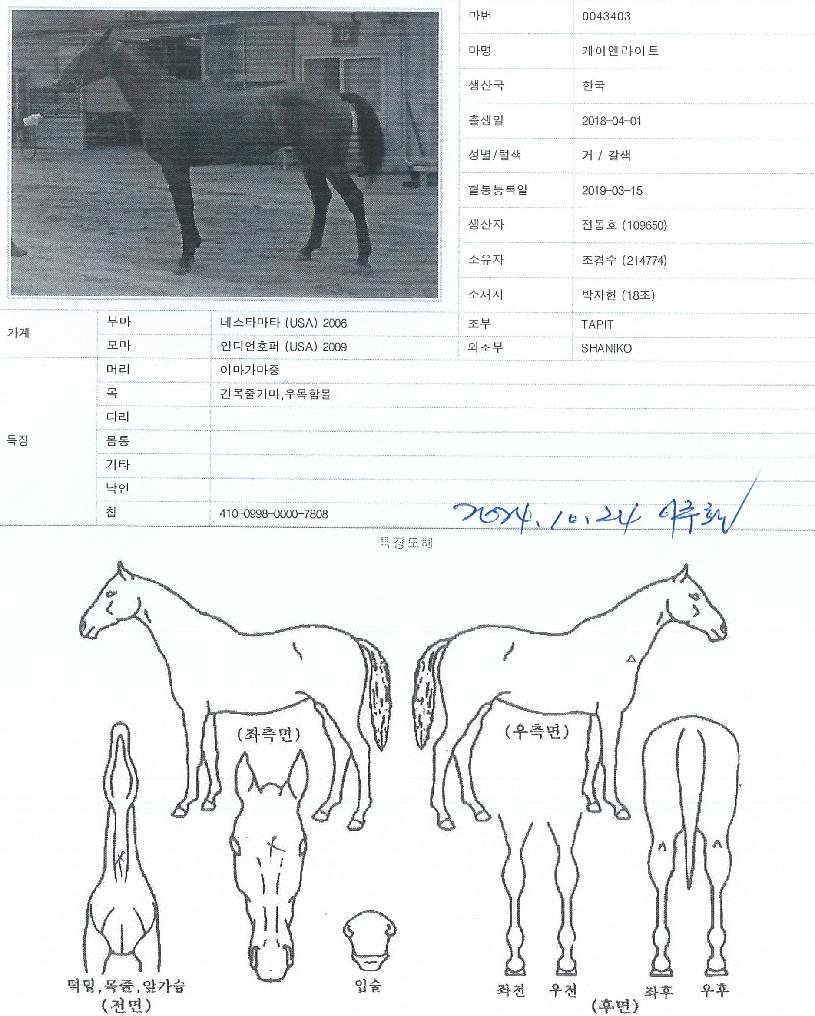 마번 0043403
마명 게이엔라이트
생산국 한국
출생일 2018-04-01
성별/털색 거 / 갈색
혈통등록일 2019-03-15
생산자 전동호 (109650)
소유자 조경수 (214774)
소재지 박지헌 (18조)
가계 부마 네스타마타 (USA) 2006 조부 TAPIT
모마 인디언호퍼 (USA) 2009 외조부 SHANIKO
특징 머리 이마가마중
목 긴목줄가마,우목함몰
다리
몸통
기타
낙인
칩 410-0998-0000-7808
2024. 10. 24
특징도해
(좌측면) (우측면)
턱밑,목줄,앞가슴 입술 좌전 우전 좌후 우후
(전면) (후면)